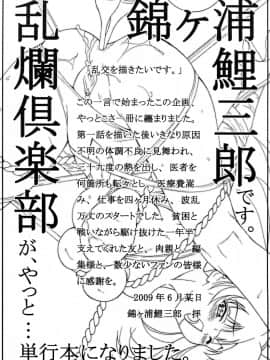 錦ヶ浦鯉三郎です。
「乱交を描きたいです。」
この一言で始まったこの企画、
やっとこさ一冊に纏まりました。
第一話を描いた後いきなり原因
不明の体調不良に見舞われ、
三十九度の熱を出し、医者を
何箇所も転々とし、医療費嵩
み、仕事を四ヶ月休み、波乱
万丈のスタートでした。貧困と
戦いながら駆け抜けた一年半、
支えてくれた友と、肉親と、編
集様と、数少ないファンの皆様
に感謝を。
2009年6月某日
錦ヶ浦鯉三郎 拝
乱爛倶楽部
が、やっと…
単行本になりました。